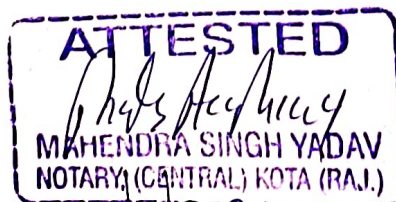 ATTESTED
MAHENDRA SINGH YADAV
NOTARY, (CENTRAL) KOTA (RAJ.)